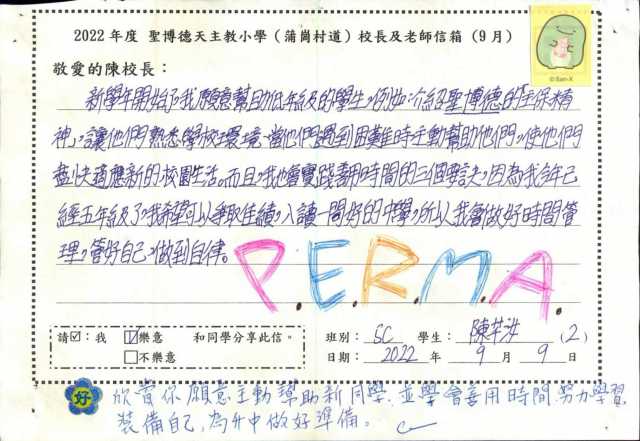 2022 年度 聖博德天主教小學（蒲崗村道）校長及老師信箱（9月）
©San-X
敬愛的陳校長：
新學年開始了，我願意幫助低年級的學生，例如：介紹聖博德的「主保精
神」，讓他們熟悉學校環境，當他們遇到困難時主動幫助他們，使他們
盡快適應新的校園生活。而且，我也會實踐善用時間的三個要訣，因為我今年已
經五年級了，我希望可以爭取佳績，入讀一間好的中學，所以我會做好時間管
理，管好自己，做到自律。
P.E.R.M.A.
請☑：我 ☑樂意 和同學分享此信。
□不樂意
班別：5C 學生：陳芊汝 (2)
日期：2022 年 9 月 9 日
好 欣賞你願意主動幫助新同學，並學會善用時間，努力學習，
裝備自己，為升中做好準備。